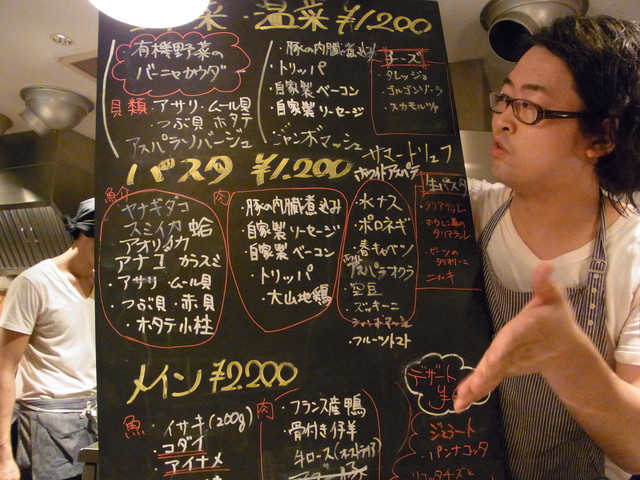 菜・温菜 ¥1,200
有機野菜の
バーニャカウダ
貝類 アサリ・ムール貝
・つぶ貝・ホタテ
アスパラソバージュ
・豚の内臓煮込み
・トリッパ
・自家製ベーコン
・自家製ソーセージ
ジャンボマッシュ
チーズ
・タレッジョ
・ゴルゴンゾーラ
・スカモルツァ
パスタ ¥1,200
サマートリュフ
ホワイトアスパラ
魚介
・ヤナギダコ
・スミイカ 蛤
・アオリイカ
・アナゴ カラスミ
・アサリ・ムール貝
・つぶ貝・赤貝
・ホタテ小柱
肉
・豚の内臓煮込み
・自家製ソーセージ
・自家製ベーコン
・トリッパ
・大山地鶏
・水ナス
・ポロネギ
・春キャベツ
アスパラオクラ
・空豆
・ズッキーニ
・フルーツトマト
生パスタ
・タリアテッレ
・ほうれん草の
タリアテッレ
・ニョッキ
メイン ¥2,200
魚
・イサキ(200g)
・コダイ
・アイナメ
肉
・フランス産鴨
・骨付き仔羊
・牛ロース(オーストラリア)
デザート
・ジェラート
・パンナコッタ
・リコッタチーズと